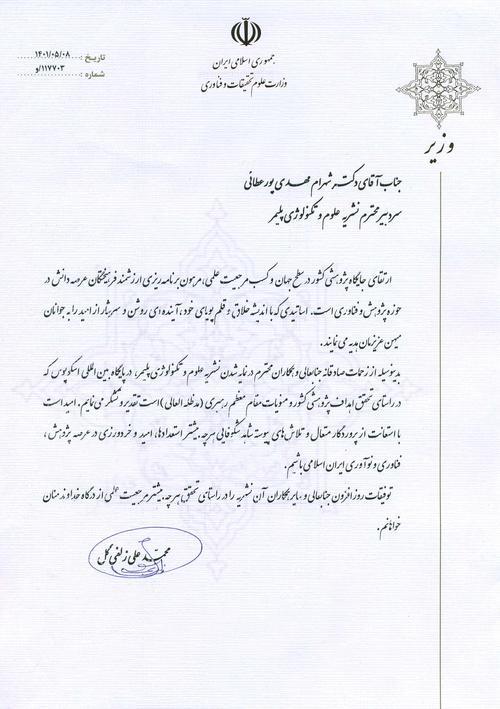 جمهوری اسلامی ایران
وزارت علوم تحقیقات و فناوری
تاریخ : ۱۴۰۱/۰۵/۰۸
شماره : ۱۱۷۷۰۳/و
وزیر
جناب آقای دکتر شهرام مهدی پور عطائی
سردبیر محترم نشریه علوم و تکنولوژی پلیمر
ارتقای جایگاه پژوهشی کشور در سطح جهان و کسب مرجعیت علمی، مرهون برنامه ریزی ارزشمند فرهیختگان عرصه دانش در
حوزه پژوهش و فناوری است. اساتیدی که با اندیشه خلاق و قلم پویای خود، آینده ای روشن و سرشار از امید را به جوانان
میهن عزیزمان هدیه می نمایند.
بدینوسیله از زحمات صادقانه جنابعالی و همکاران محترم در نمایه شدن نشریه علوم و تکنولوژی پلیمر، در پایگاه بین المللی اسکوپوس که
در راستای تحقق اهداف پژوهشی کشور و منویات مقام معظم رهبری (مدظله العالی) است تقدیر و تشکر می نمایم. امید است
با استعانت از پروردگار متعال و تلاش های پیوسته شاهد شکوفایی هرچه بیشتر استعدادها، امید و خردورزی در عرصه پژوهش،
فناوری و نوآوری ایران اسلامی باشیم.
توفیقات روزافزون جنابعالی و سایر همکاران آن نشریه را در راستای تحقق هرچه بیشتر مرجعیت علمی از درگاه خداوند منان
خواهانم.
محمد علی زلفی گل